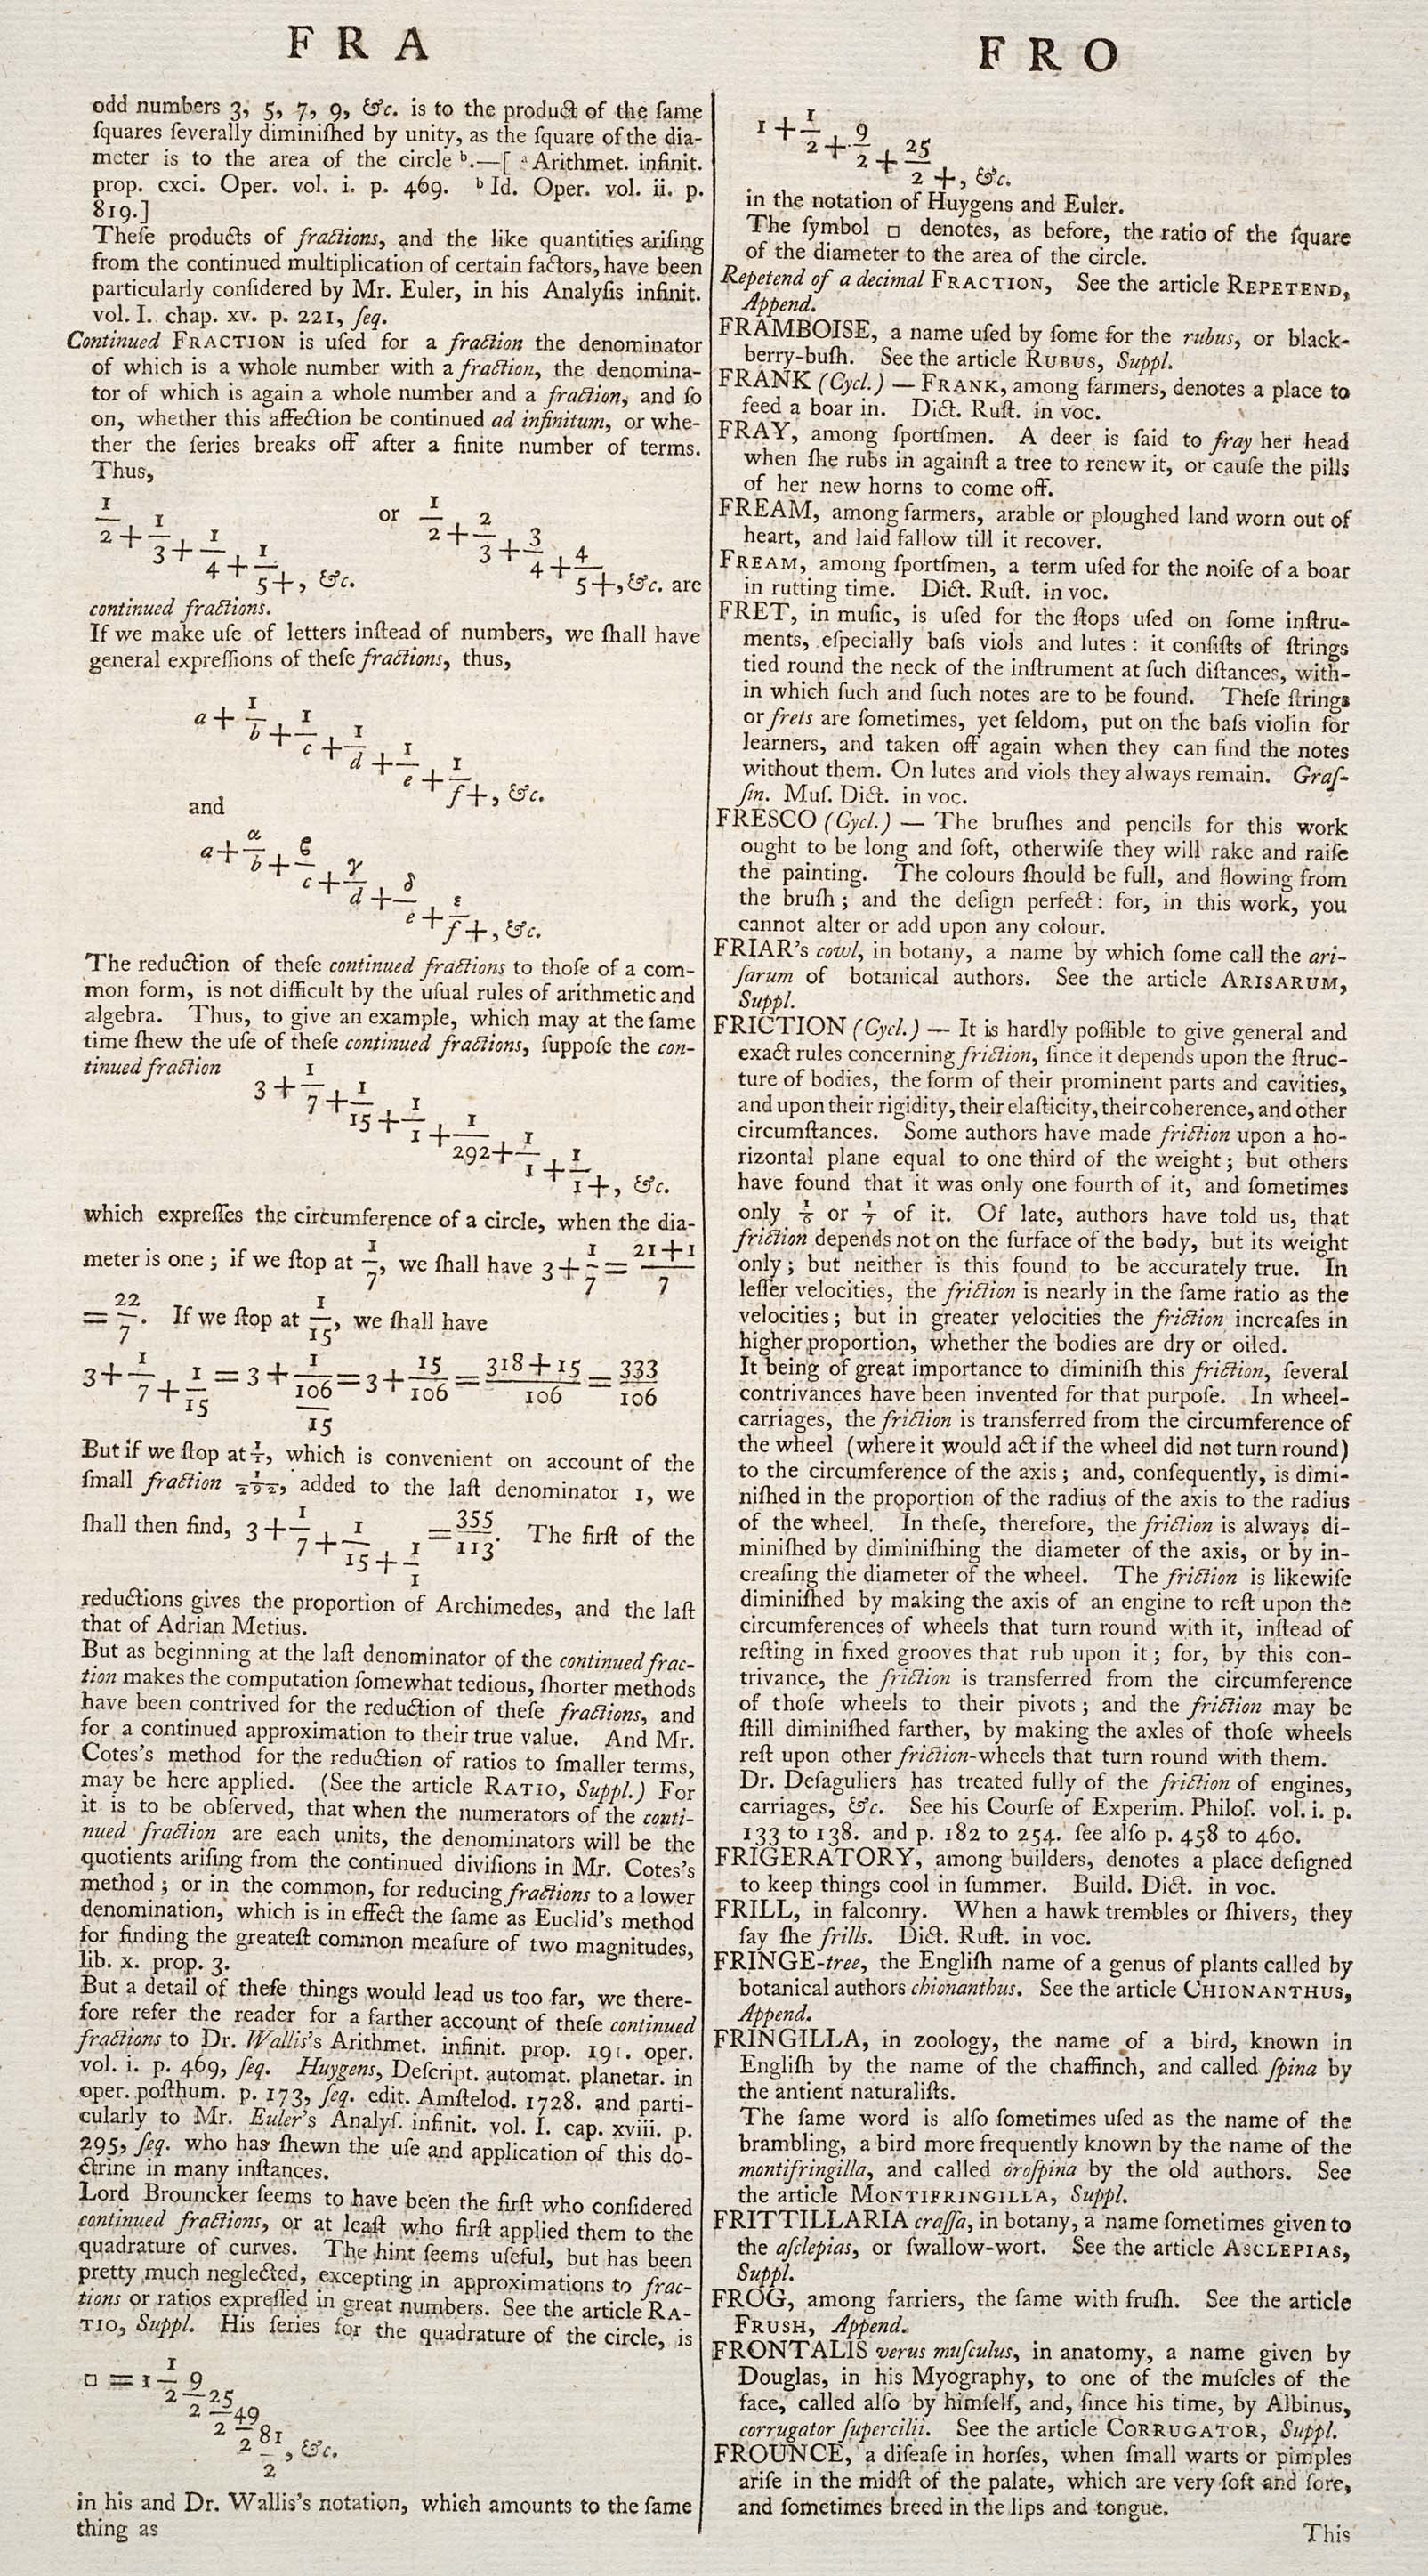 FRA
odd numbers 3, 5, 7, 9, &c. is to the product of the ſame
ſquares ſeverally diminiſhed by unity, as the ſquare of the dia-
meter is to the area of the circle ᵇ.—[ ᵃ Arithmet. infinit.
prop. cxci. Oper. vol. i. p. 469. ᵇ Id. Oper. vol. ii. p.
819.]
Theſe products of fractions, and the like quantities ariſing
from the continued multiplication of certain factors, have been
particularly conſidered by Mr. Euler, in his Analyſis infinit.
vol. I. chap. xv. p. 221, ſeq.
Continued FRACTION is uſed for a fraction the denominator
of which is a whole number with a fraction, the denomina-
tor of which is again a whole number and a fraction, and ſo
on, whether this affection be continued ad infinitum, or whe-
ther the ſeries breaks off after a finite number of terms.
Thus,
1/2+1/3+1/4+1/5+, &c. or 1/2+2/3+3/4+4/5+, &c. are
continued fractions.
If we make uſe of letters inſtead of numbers, we ſhall have
general expreſſions of theſe fractions, thus,
a+1/b+1/c+1/d+1/e+1/f+, &c.
and
a+α/b+ϐ/c+γ/d+δ/e+ε/f+, &c.
The reduction of theſe continued fractions to thoſe of a com-
mon form, is not difficult by the uſual rules of arithmetic and
algebra. Thus, to give an example, which may at the ſame
time ſhew the uſe of theſe continued fractions, ſuppoſe the con-
tinued fraction
3+1/7+1/15+1/1+1/292+1/1+1/1+, &c.
which expreſſes the circumference of a circle, when the dia-
meter is one; if we ſtop at 1/7, we ſhall have 3+1/7=21+1/7
=22/7. If we ſtop at 1/15, we ſhall have
3+1/7+1/15=3+1/106/15=3+15/106=318+15/106=333/106
But if we ſtop at 1/1, which is convenient on account of the
ſmall fraction 1/292, added to the laſt denominator 1, we
ſhall then find, 3+1/7+1/15+1/1=355/113. The firſt of the
reductions gives the proportion of Archimedes, and the laſt
that of Adrian Metius.
But as beginning at the laſt denominator of the continued frac-
tion makes the computation ſomewhat tedious, ſhorter methods
have been contrived for the reduction of theſe fractions, and
for a continued approximation to their true value. And Mr.
Cotes's method for the reduction of ratios to ſmaller terms,
may be here applied. (See the article RATIO, Suppl.) For
it is to be obſerved, that when the numerators of the conti-
nued fraction are each units, the denominators will be the
quotients ariſing from the continued diviſions in Mr. Cotes's
method; or in the common, for reducing fractions to a lower
denomination, which is in effect the ſame as Euclid's method
for finding the greateſt common meaſure of two magnitudes,
lib. x. prop. 3.
But a detail of theſe things would lead us too far, we there-
fore refer the reader for a farther account of theſe continued
fractions to Dr. Wallis's Arithmet. infinit. prop. 191. oper.
vol. i. p. 469, ſeq. Huygens, Deſcript. automat. planetar. in
oper. poſthum. p. 173, ſeq. edit. Amſtelod. 1728. and parti-
cularly to Mr. Euler's Analyſ. infinit. vol. I. cap. xviii. p.
295, ſeq. who has ſhewn the uſe and application of this do-
ctrine in many inſtances.
Lord Brouncker ſeems to have been the firſt who conſidered
continued fractions, or at leaſt who firſt applied them to the
quadrature of curves. The hint ſeems uſeful, but has been
pretty much neglected, excepting in approximations to frac-
tions or ratios expreſſed in great numbers. See the article RA-
TIO, Suppl. His ſeries for the quadrature of the circle, is
□ = 1 1/2 9/2 25/2 49/2 81/2, &c.
in his and Dr. Wallis's notation, which amounts to the ſame
thing as
FRO
1+1/2+9/2+25/2+, &c.
in the notation of Huygens and Euler.
The ſymbol □ denotes, as before, the ratio of the ſquare
of the diameter to the area of the circle.
Repetend of a decimal FRACTION, See the article REPETEND,
Append.
FRAMBOISE, a name uſed by ſome for the rubus, or black-
berry-buſh. See the article RUBUS, Suppl.
FRANK (Cycl.) — FRANK, among farmers, denotes a place to
feed a boar in. Dict. Ruſt. in voc.
FRAY, among ſportſmen. A deer is ſaid to fray her head
when ſhe rubs in againſt a tree to renew it, or cauſe the pills
of her new horns to come off.
FREAM, among farmers, arable or ploughed land worn out of
heart, and laid fallow till it recover.
FREAM, among ſportſmen, a term uſed for the noiſe of a boar
in rutting time. Dict. Ruſt. in voc.
FRET, in muſic, is uſed for the ſtops uſed on ſome inſtru-
ments, eſpecially baſs viols and lutes: it conſiſts of ſtrings
tied round the neck of the inſtrument at ſuch diſtances, with-
in which ſuch and ſuch notes are to be found. Theſe ſtrings
or frets are ſometimes, yet ſeldom, put on the baſs violin for
learners, and taken off again when they can find the notes
without them. On lutes and viols they always remain. Graſ-
ſin. Muſ. Dict. in voc.
FRESCO (Cycl.) — The bruſhes and pencils for this work
ought to be long and ſoft, otherwiſe they will rake and raiſe
the painting. The colours ſhould be full, and flowing from
the bruſh; and the deſign perfect: for, in this work, you
cannot alter or add upon any colour.
FRIAR's cowl, in botany, a name by which ſome call the ari-
ſarum of botanical authors. See the article ARISARUM,
Suppl.
FRICTION (Cycl.) — It is hardly poſſible to give general and
exact rules concerning friction, ſince it depends upon the ſtruc-
ture of bodies, the form of their prominent parts and cavities,
and upon their rigidity, their elaſticity, their coherence, and other
circumſtances. Some authors have made friction upon a ho-
rizontal plane equal to one third of the weight; but others
have found that it was only one fourth of it, and ſometimes
only 1/6 or 1/7 of it. Of late, authors have told us, that
friction depends not on the ſurface of the body, but its weight
only; but neither is this found to be accurately true. In
leſſer velocities, the friction is nearly in the ſame ratio as the
velocities; but in greater velocities the friction increaſes in
higher proportion, whether the bodies are dry or oiled.
It being of great importance to diminiſh this friction, ſeveral
contrivances have been invented for that purpoſe. In wheel-
carriages, the friction is transferred from the circumference of
the wheel (where it would act if the wheel did not turn round)
to the circumference of the axis; and, conſequently, is dimi-
niſhed in the proportion of the radius of the axis to the radius
of the wheel. In theſe, therefore, the friction is always di-
miniſhed by diminiſhing the diameter of the axis, or by in-
creaſing the diameter of the wheel. The friction is likewiſe
diminiſhed by making the axis of an engine to reſt upon the
circumferences of wheels that turn round with it, inſtead of
reſting in fixed grooves that rub upon it; for, by this con-
trivance, the friction is transferred from the circumference
of thoſe wheels to their pivots; and the friction may be
ſtill diminiſhed farther, by making the axles of thoſe wheels
reſt upon other friction-wheels that turn round with them.
Dr. Deſaguliers has treated fully of the friction of engines,
carriages, &c. See his Courſe of Experim. Philoſ. vol. i. p.
133 to 138. and p. 182 to 254. ſee alſo p. 458 to 460.
FRIGERATORY, among builders, denotes a place deſigned
to keep things cool in ſummer. Build. Dict. in voc.
FRILL, in falconry. When a hawk trembles or ſhivers, they
ſay ſhe frills. Dict. Ruſt. in voc.
FRINGE-tree, the Engliſh name of a genus of plants called by
botanical authors chionanthus. See the article CHIONANTHUS,
Append.
FRINGILLA, in zoology, the name of a bird, known in
Engliſh by the name of the chaffinch, and called ſpina by
the antient naturaliſts.
The ſame word is alſo ſometimes uſed as the name of the
brambling, a bird more frequently known by the name of the
montifringilla, and called oroſpina by the old authors. See
the article MONTIFRINGILLA, Suppl.
FRITTILLARIA craſſa, in botany, a name ſometimes given to
the aſclepias, or ſwallow-wort. See the article ASCLEPIAS,
Suppl.
FROG, among farriers, the ſame with fruſh. See the article
FRUSH, Append.
FRONTALIS verus muſculus, in anatomy, a name given by
Douglas, in his Myography, to one of the muſcles of the
face, called alſo by himſelf, and, ſince his time, by Albinus,
corrugator ſupercilii. See the article CORRUGATOR, Suppl.
FROUNCE, a diſeaſe in horſes, when ſmall warts or pimples
ariſe in the midſt of the palate, which are very ſoft and ſore,
and ſometimes breed in the lips and tongue.
This